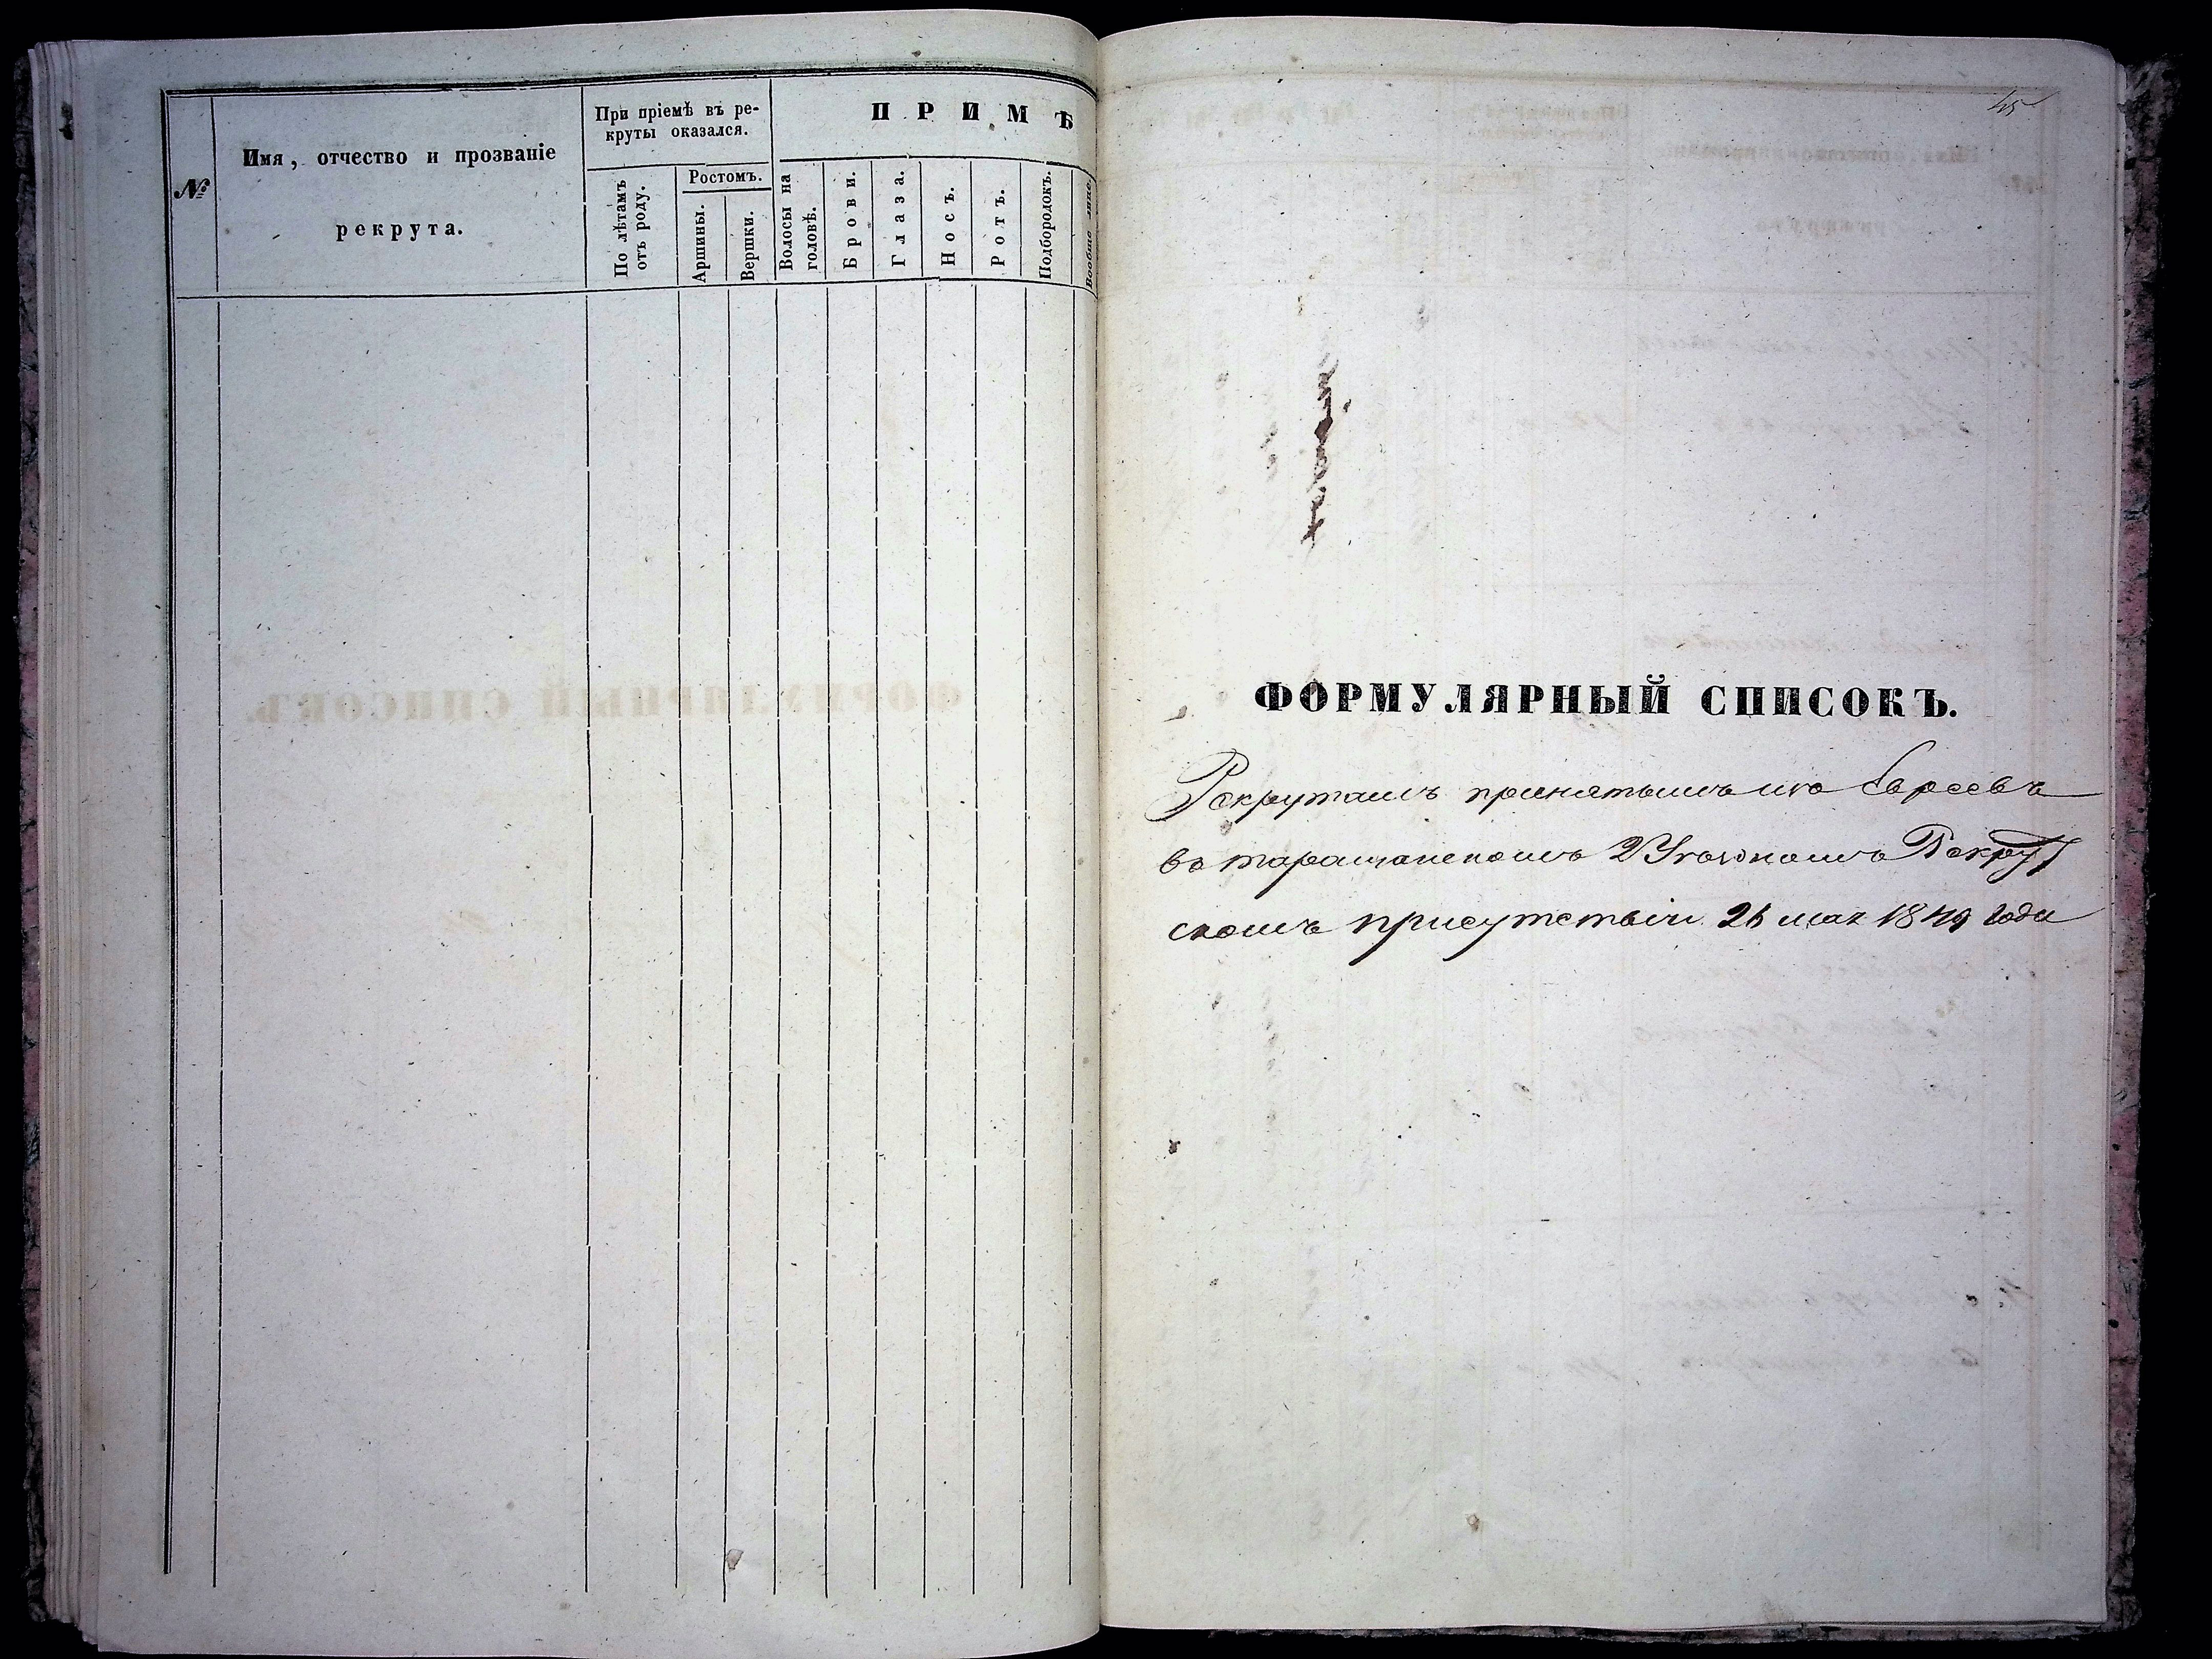 №
Имя, отчество и прозваніе
рекрута.
При пріемѣ въ ре-
круты оказался.
По лѣтамъ
отъ роду.
Ростомъ.
Аршины.
Вершки.
ПРИМѢ
Волосы на
головѣ.
Брови.
Глаза.
Носъ.
Ротъ.
Подбородокъ.
Вообще лице.
45
ФОРМУЛЯРНЫЙ СПИСОКЪ.
Рекрутамъ принятымъ изъ Евреевъ
въ таращанскомъ Уѣздномъ Рекрут
скомъ присутствіи 26 мая 1849 года